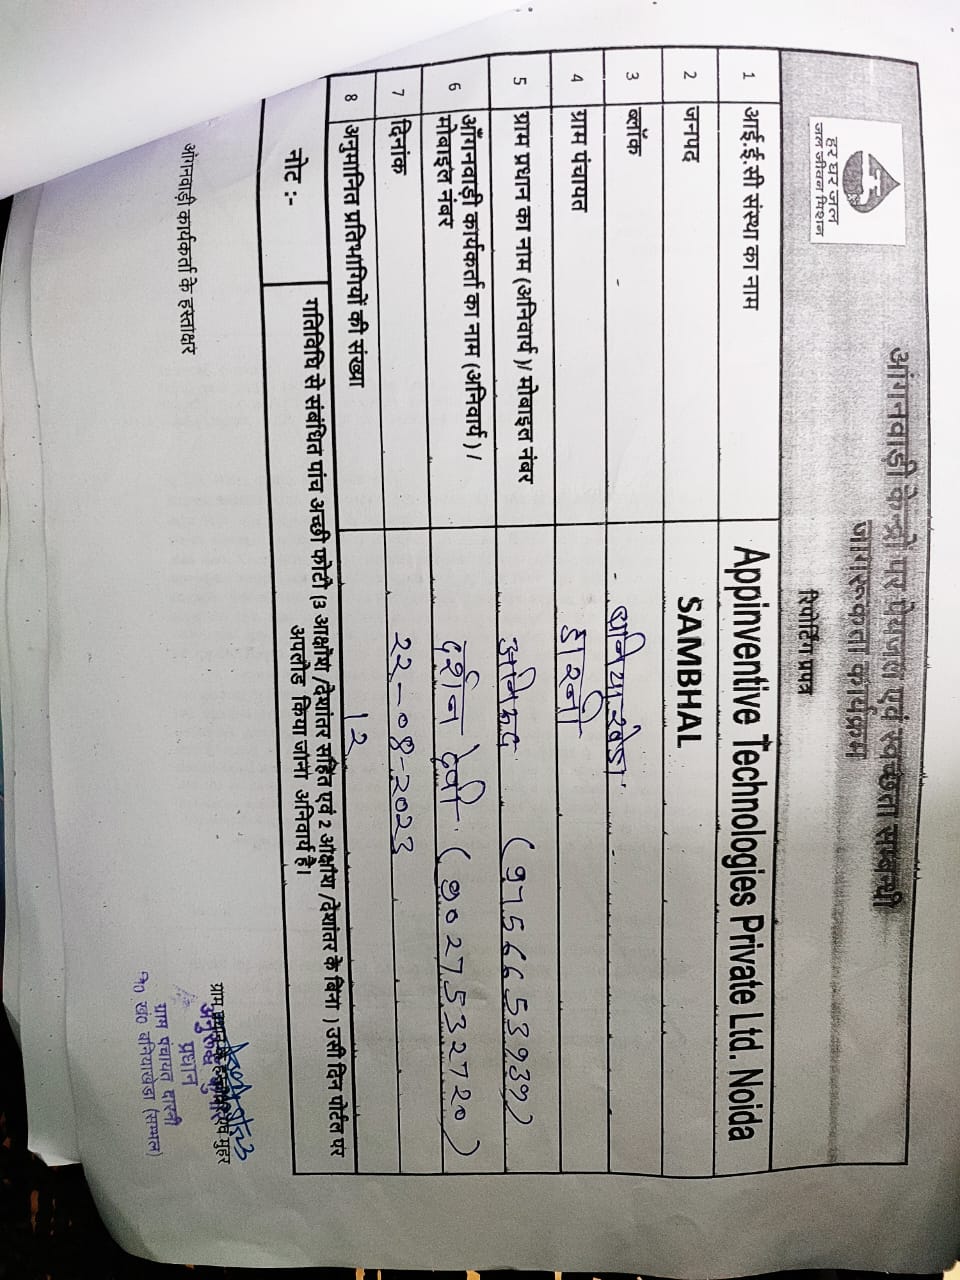 आंगनवाड़ी केन्द्रों पर पेयजल एवं स्वच्छता सम्बन्धी
जागरूकता कार्यक्रम
हर घर जल
जल जीवन मिशन
रिपोर्टिंग प्रपत्र
1 आई.ई.सी संस्था का नाम Appinventive Technologies Private Ltd. Noida
2 जनपद SAMBHAL
3 ब्लॉक बनियाखेडा
4 ग्राम पंचायत
5 ग्राम प्रधान का नाम (अनिवार्य )/ मोबाइल नंबर (9756653939)
6 आँगनवाड़ी कार्यकर्ता का नाम (अनिवार्य ) / दर्शन देवी (9027532720)
मोबाइल नंबर
7 दिनांक 22-08-2023
8 अनुमानित प्रतिभागियों की संख्या 12
नोट :- गतिविधि से संबंधित पांच अच्छी फोटो (3 आक्षांश /देशांतर सहित एवं 2 आक्षांश /देशांतर के बिना ) उसी दिन पोर्टल पर
अपलोड किया जाना अनिवार्य है।
आंगनवाड़ी कार्यकर्ता के हस्ताक्षर
ग्राम प्रधान के हस्ताक्षर एवं मुहर
प्रधान
ग्राम पंचायत
वि0 ख0 बनियाखेडा (सम्भल)